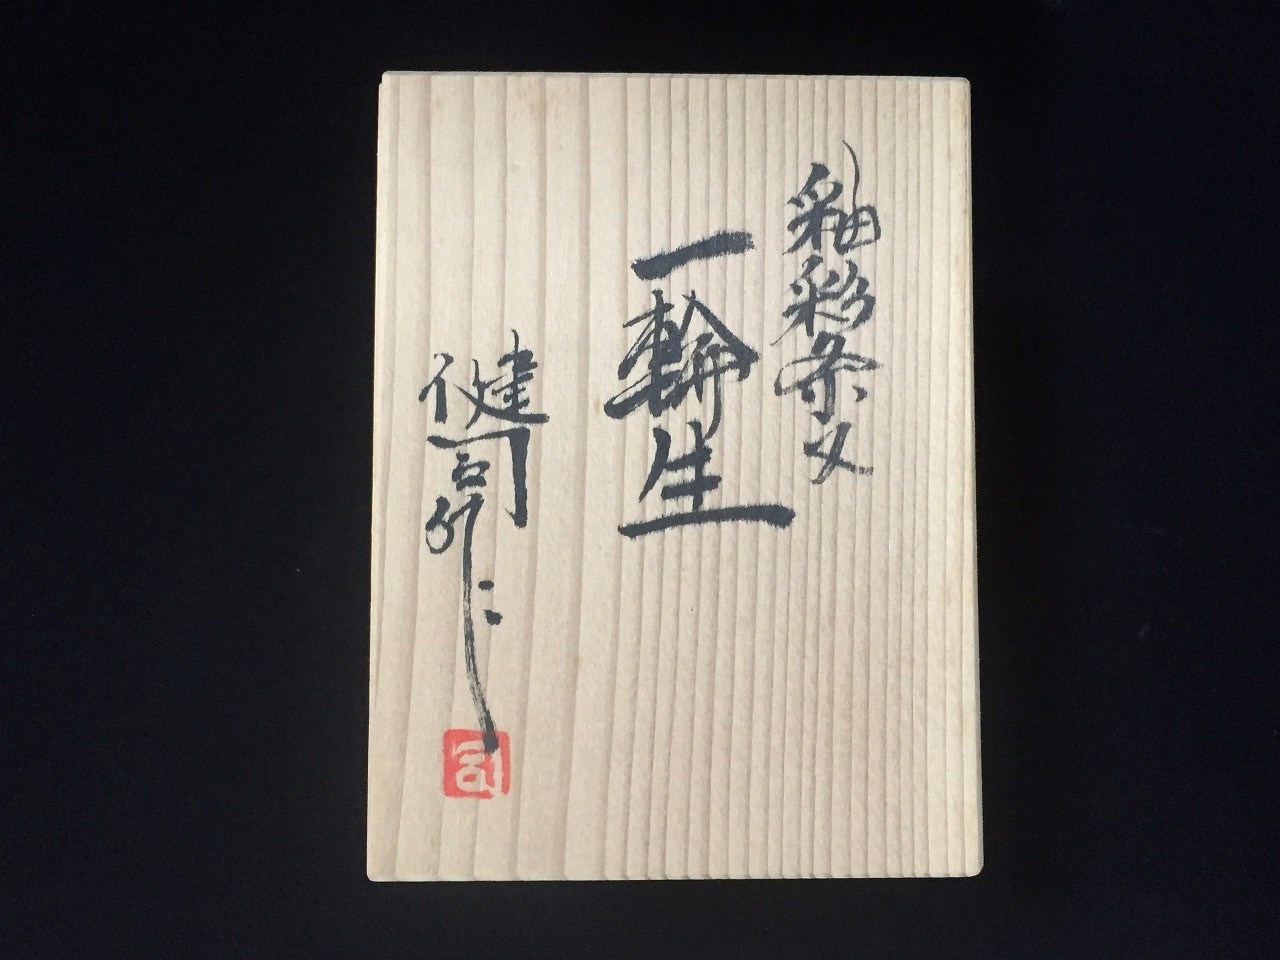 釉彩条文
一輪生
健司作
司